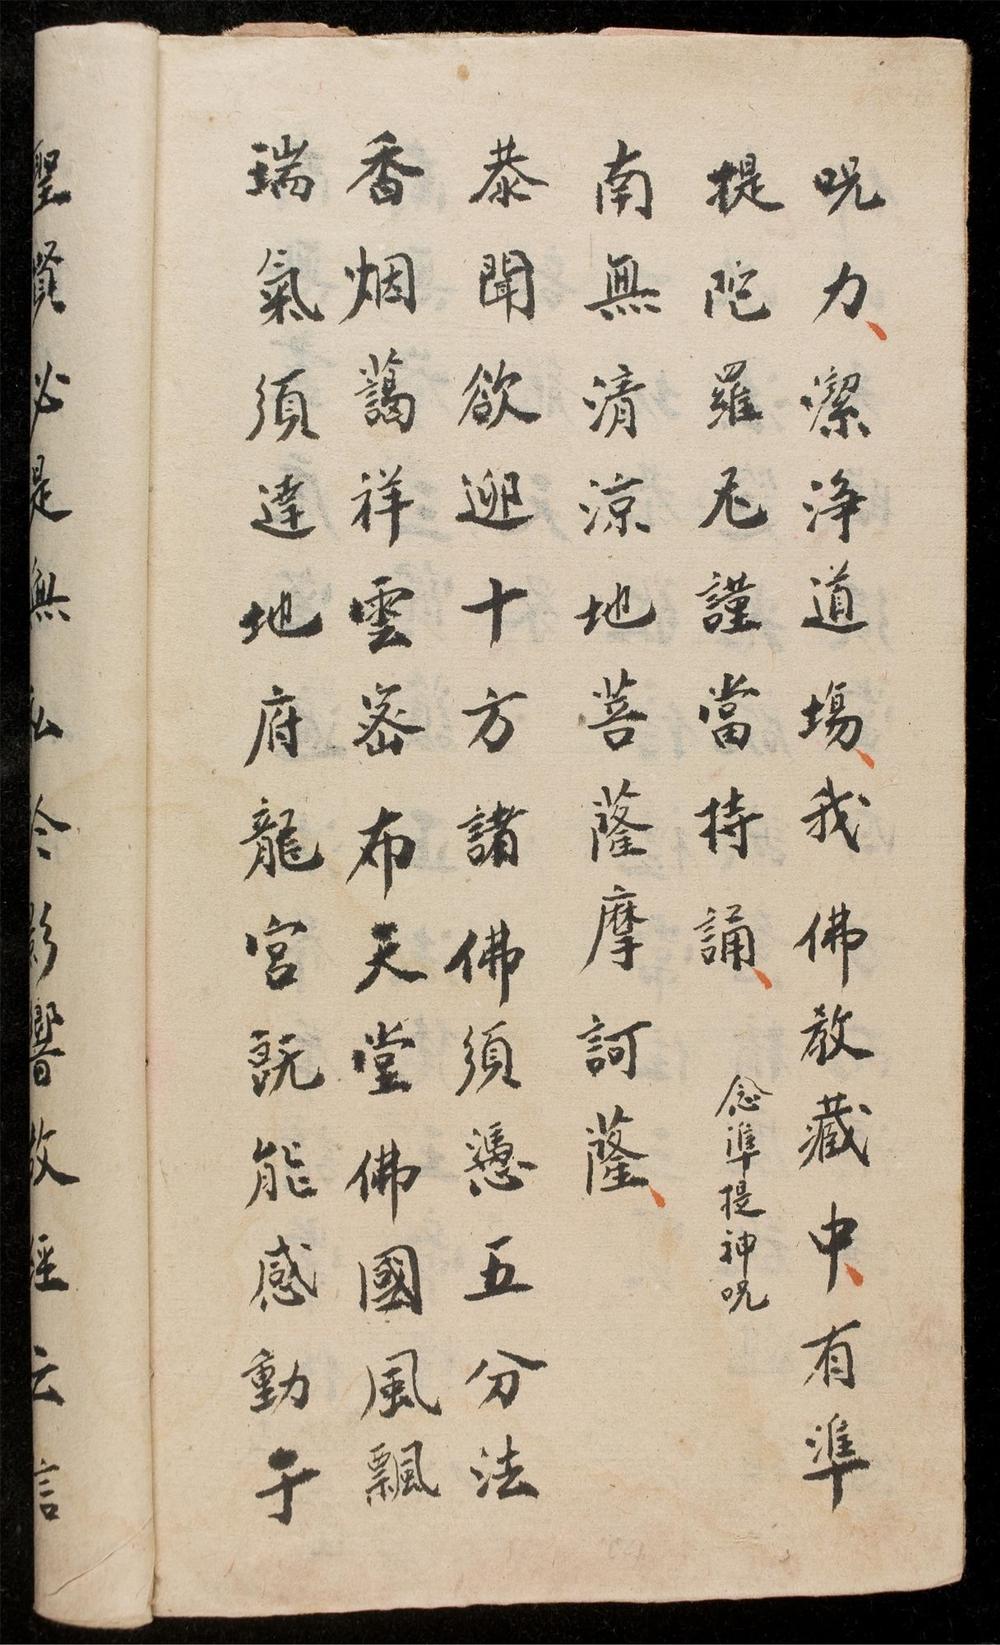 呪力、潔淨道場、我佛教藏中、有準
提陀羅尼謹當持誦、念準提神呪
南無清涼地菩薩摩訶薩、
恭聞欲迎十方諸佛須憑五分法
香烟藹祥雲密布天堂佛國風飄
瑞氣須達地府龍宮既能感動于
聖賢必是無私令影響故經云言